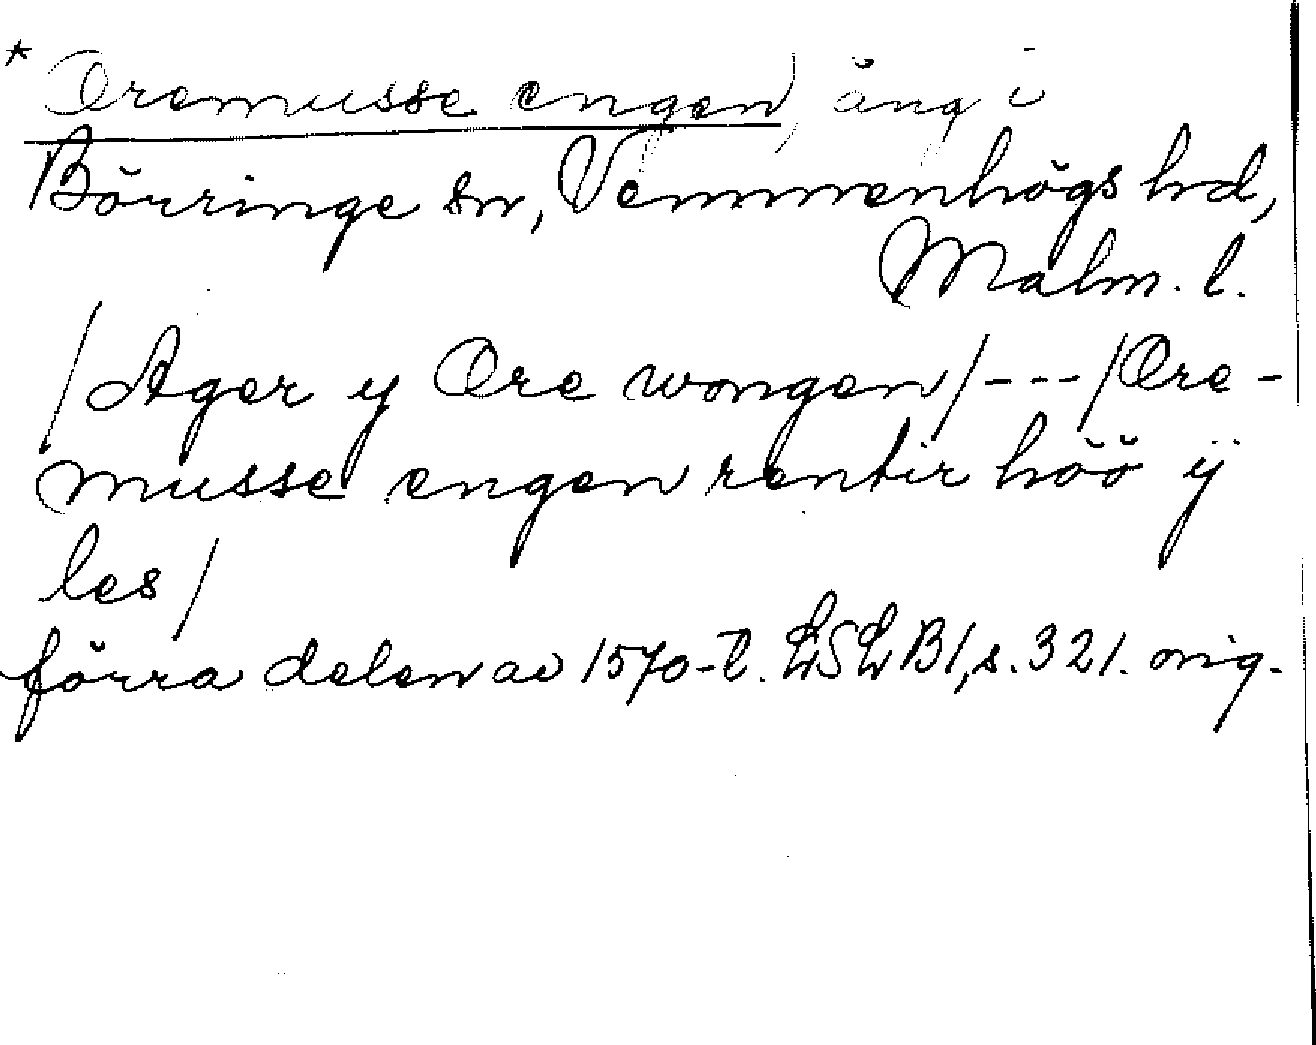 * Oremusse engen, äng i
Börringe sn, Vemmenhögs hd,
Malm. l.
/Ager y Ore wongen/---/Ore-
musse engen rentir höö ÿ
les/
förra delen av 1570-t. LSLB1, s. 321. orig.